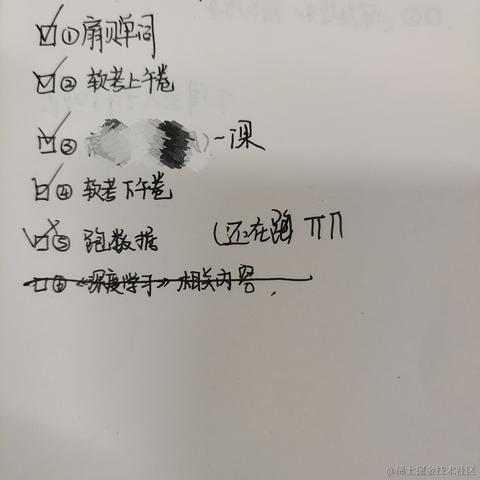 ☑ ① 扇贝单词
☑ ② 软考上午卷
☑ ③ 一课
☑ ④ 软考下午卷
☑ ⑤ 跑数据 (还在跑 ㄇㄇ
□ ⑥ 《深度学习》相关内容.
@稀土掘金技术社区